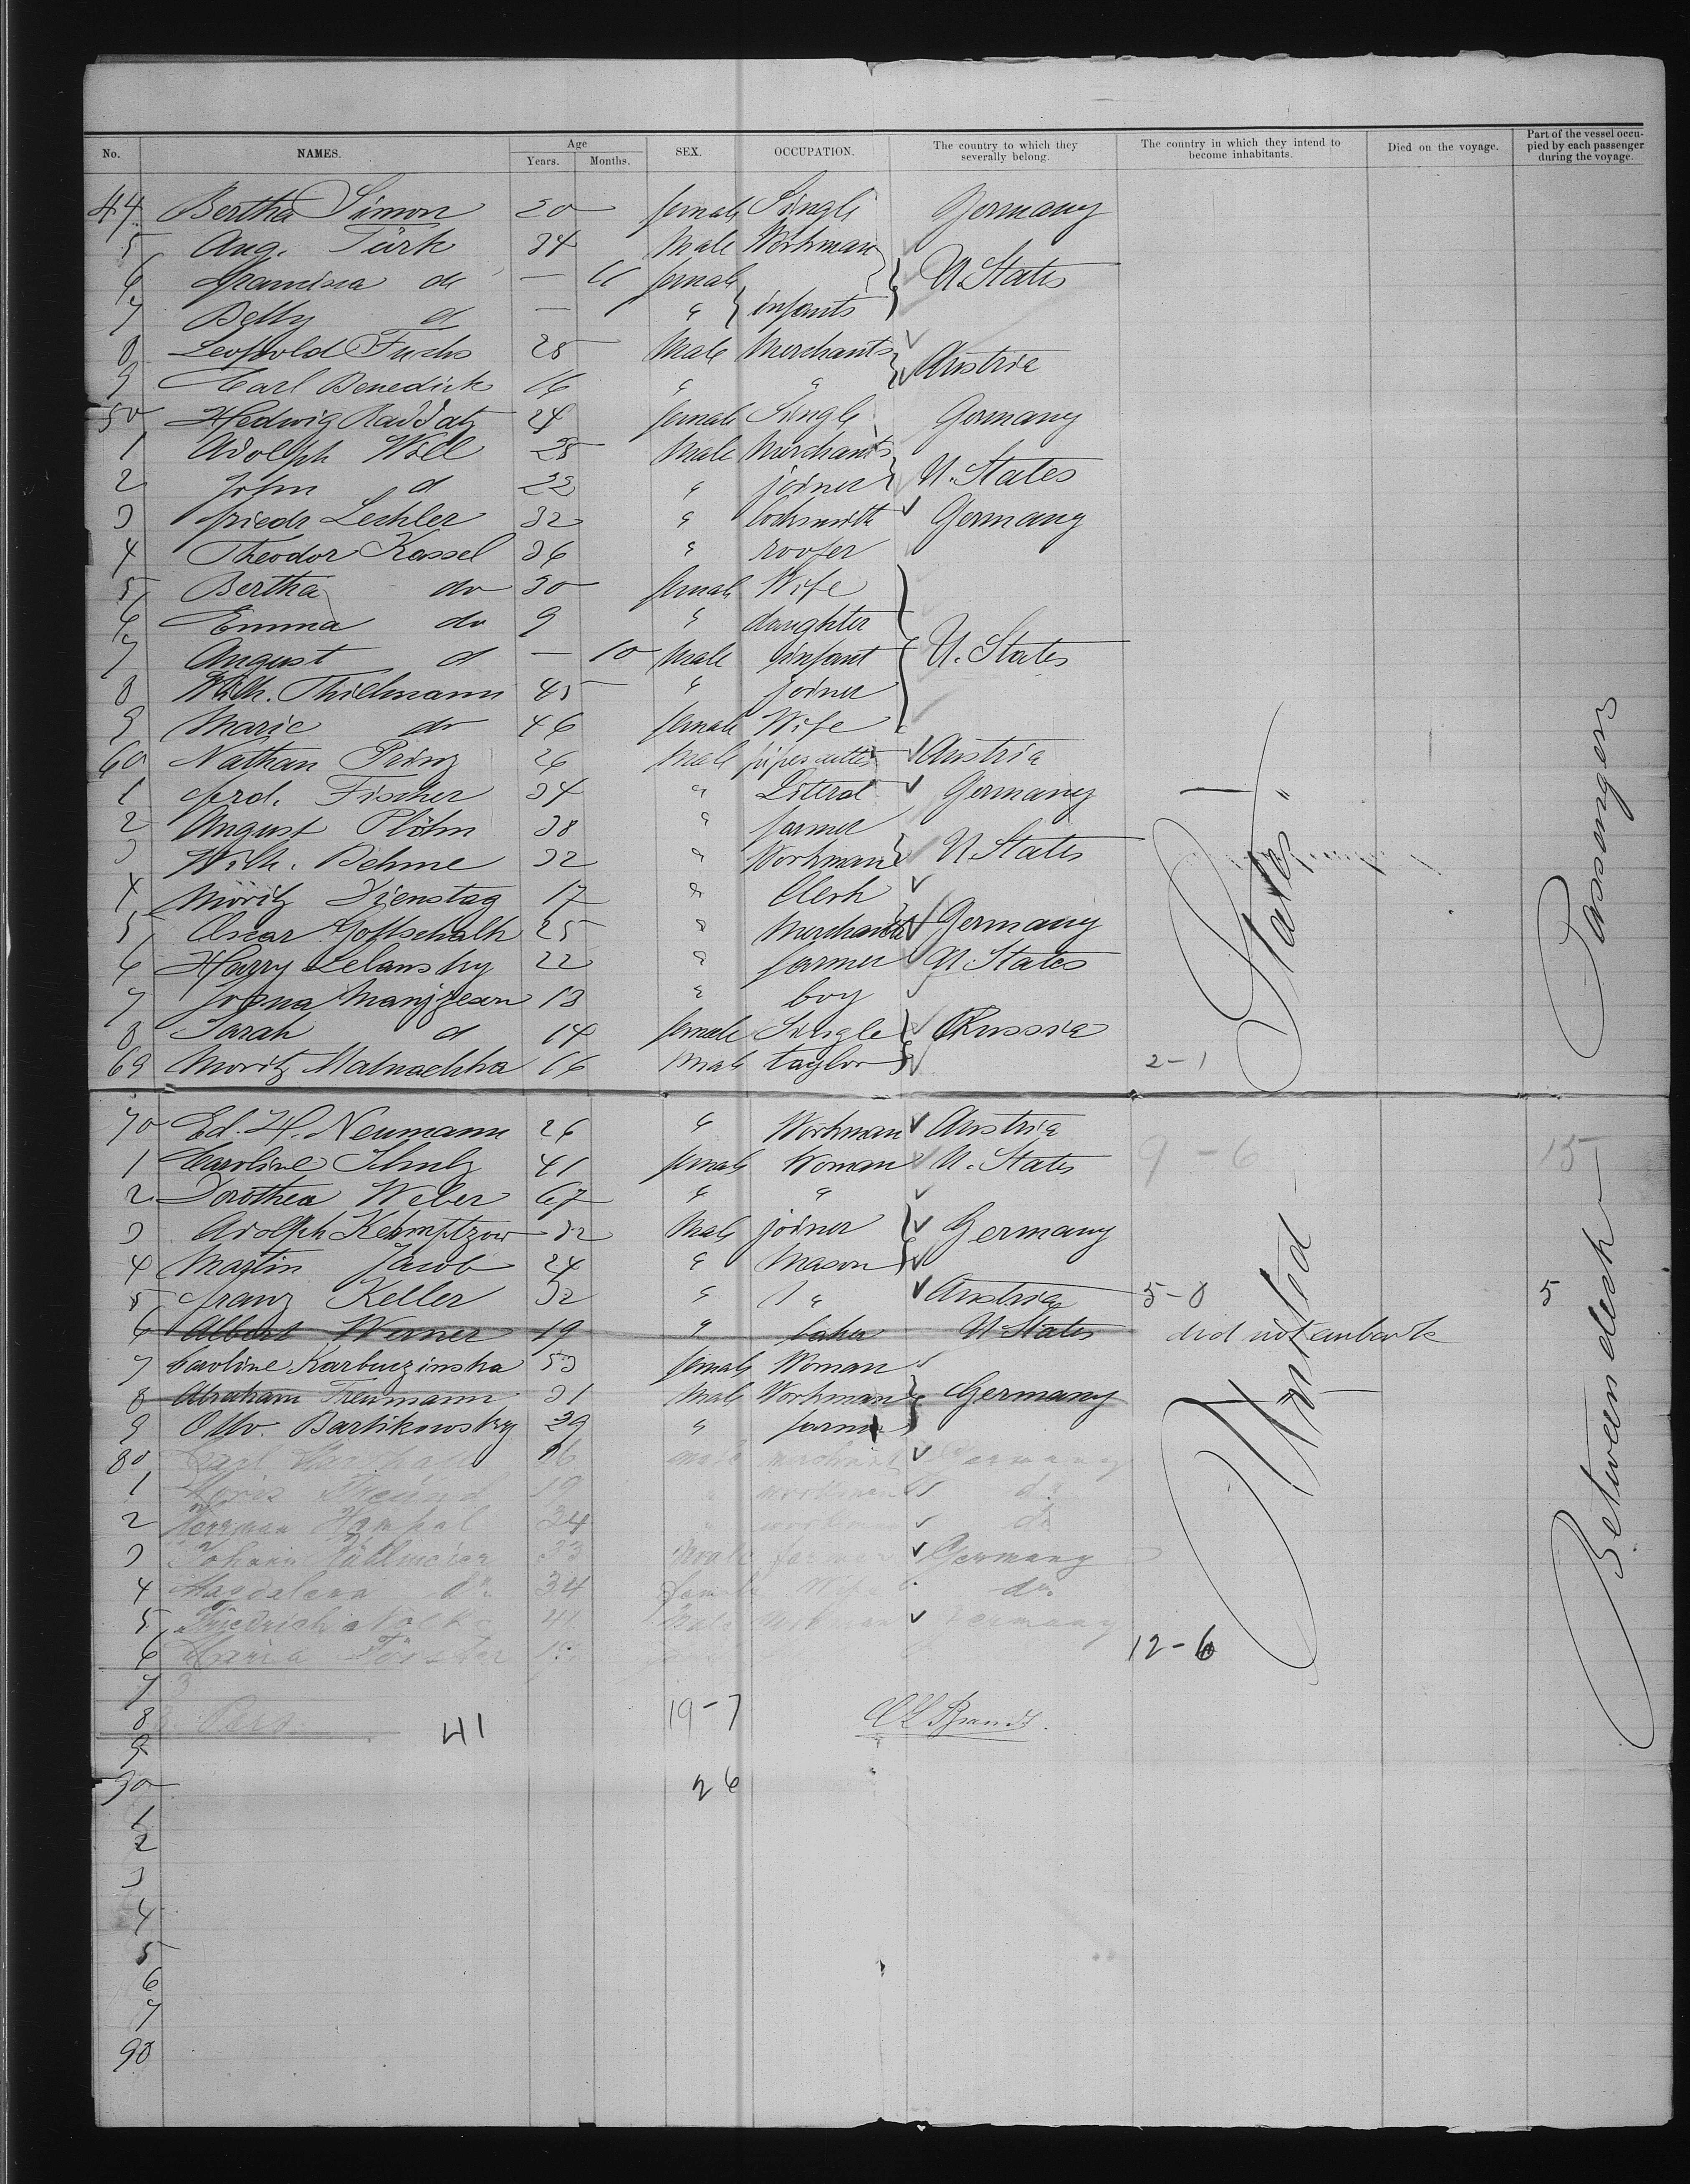 No. NAMES. Age Years. Months. SEX. OCCUPATION. The country to which they severally belong. The country in which they intend to become inhabitants. Died on the voyage. Part of the vessel occupied by each passenger during the voyage.
44 Bertha Simon 20 female Single Germany
5 Aug. Türk 34 Male Workman
6 do — 11 female U. States
7 Betty d — " infants
8 Leopold Fuchs 25 Male Merchants
9 Carl Benedick 16 " " Austria
50 Hedwig Raddatz 24 female Single Germany
1 Adolph Will 25 Male Merchants
2 John d 22 " joiner U. States
3 friedr Lechler 32 " locksmith Germany
4 Theodor Kassel 36 " roofer
5 Bertha do 30 female Wife
6 Emma do 9 " daughter
7 August d — 10 Male infant U. States
8 Wilh. Thielmann 45 " joiner
9 Marie do 46 female Wife
60 Nathan Prinz 26 Male pipecutter Austria
1 ferd. Fischer 34 " Literat Germany
2 August Plöhn 38 " farmer
3 Wilh. Behme 32 " Workman U States
4 Moritz Dienstag 17 " Clerk
5 Oscar Gottschalk 25 " Merchant Germany
6 Harry Lelansky 22 " farmer U States
7 13 " boy
8 Sarah d 14 female Single Russia
69 Moritz 16 Male taylor 2-1
States
Passengers
70 Ed. H. Neumann 26 " Workman Austria
1 Caroline Schulz 41 female Woman U. States 9-6 15
2 Dorothea Weber 67 " "
3 Adolph Kehmptzow 32 Male joiner Germany
4 Martin Jacob 24 " Mason
5 franz Keller 32 " " Austria 5-0 5
6 Albert Werner 19 " baker U States did not embark
7 Caroline Karbuzinska 53 female Woman
8 Abraham Freumann 31 Male Workman Germany
9 Otto. Bartikowsky 29 " farmer
80 Carl 36 male Germany
1 Moris Freund 19 " workman do
2 Herrman Hampel 34 " do
3 Johann 33 Male farmer Germany
4 Magdalena do 34 female Wife do
5 Friedrich 41 Male workman Germany
6 Maria Förster 12-6
7
8 Pass 41 19-7
9
90 26
1
2
3
4
5
6
7
98
United
Between deck